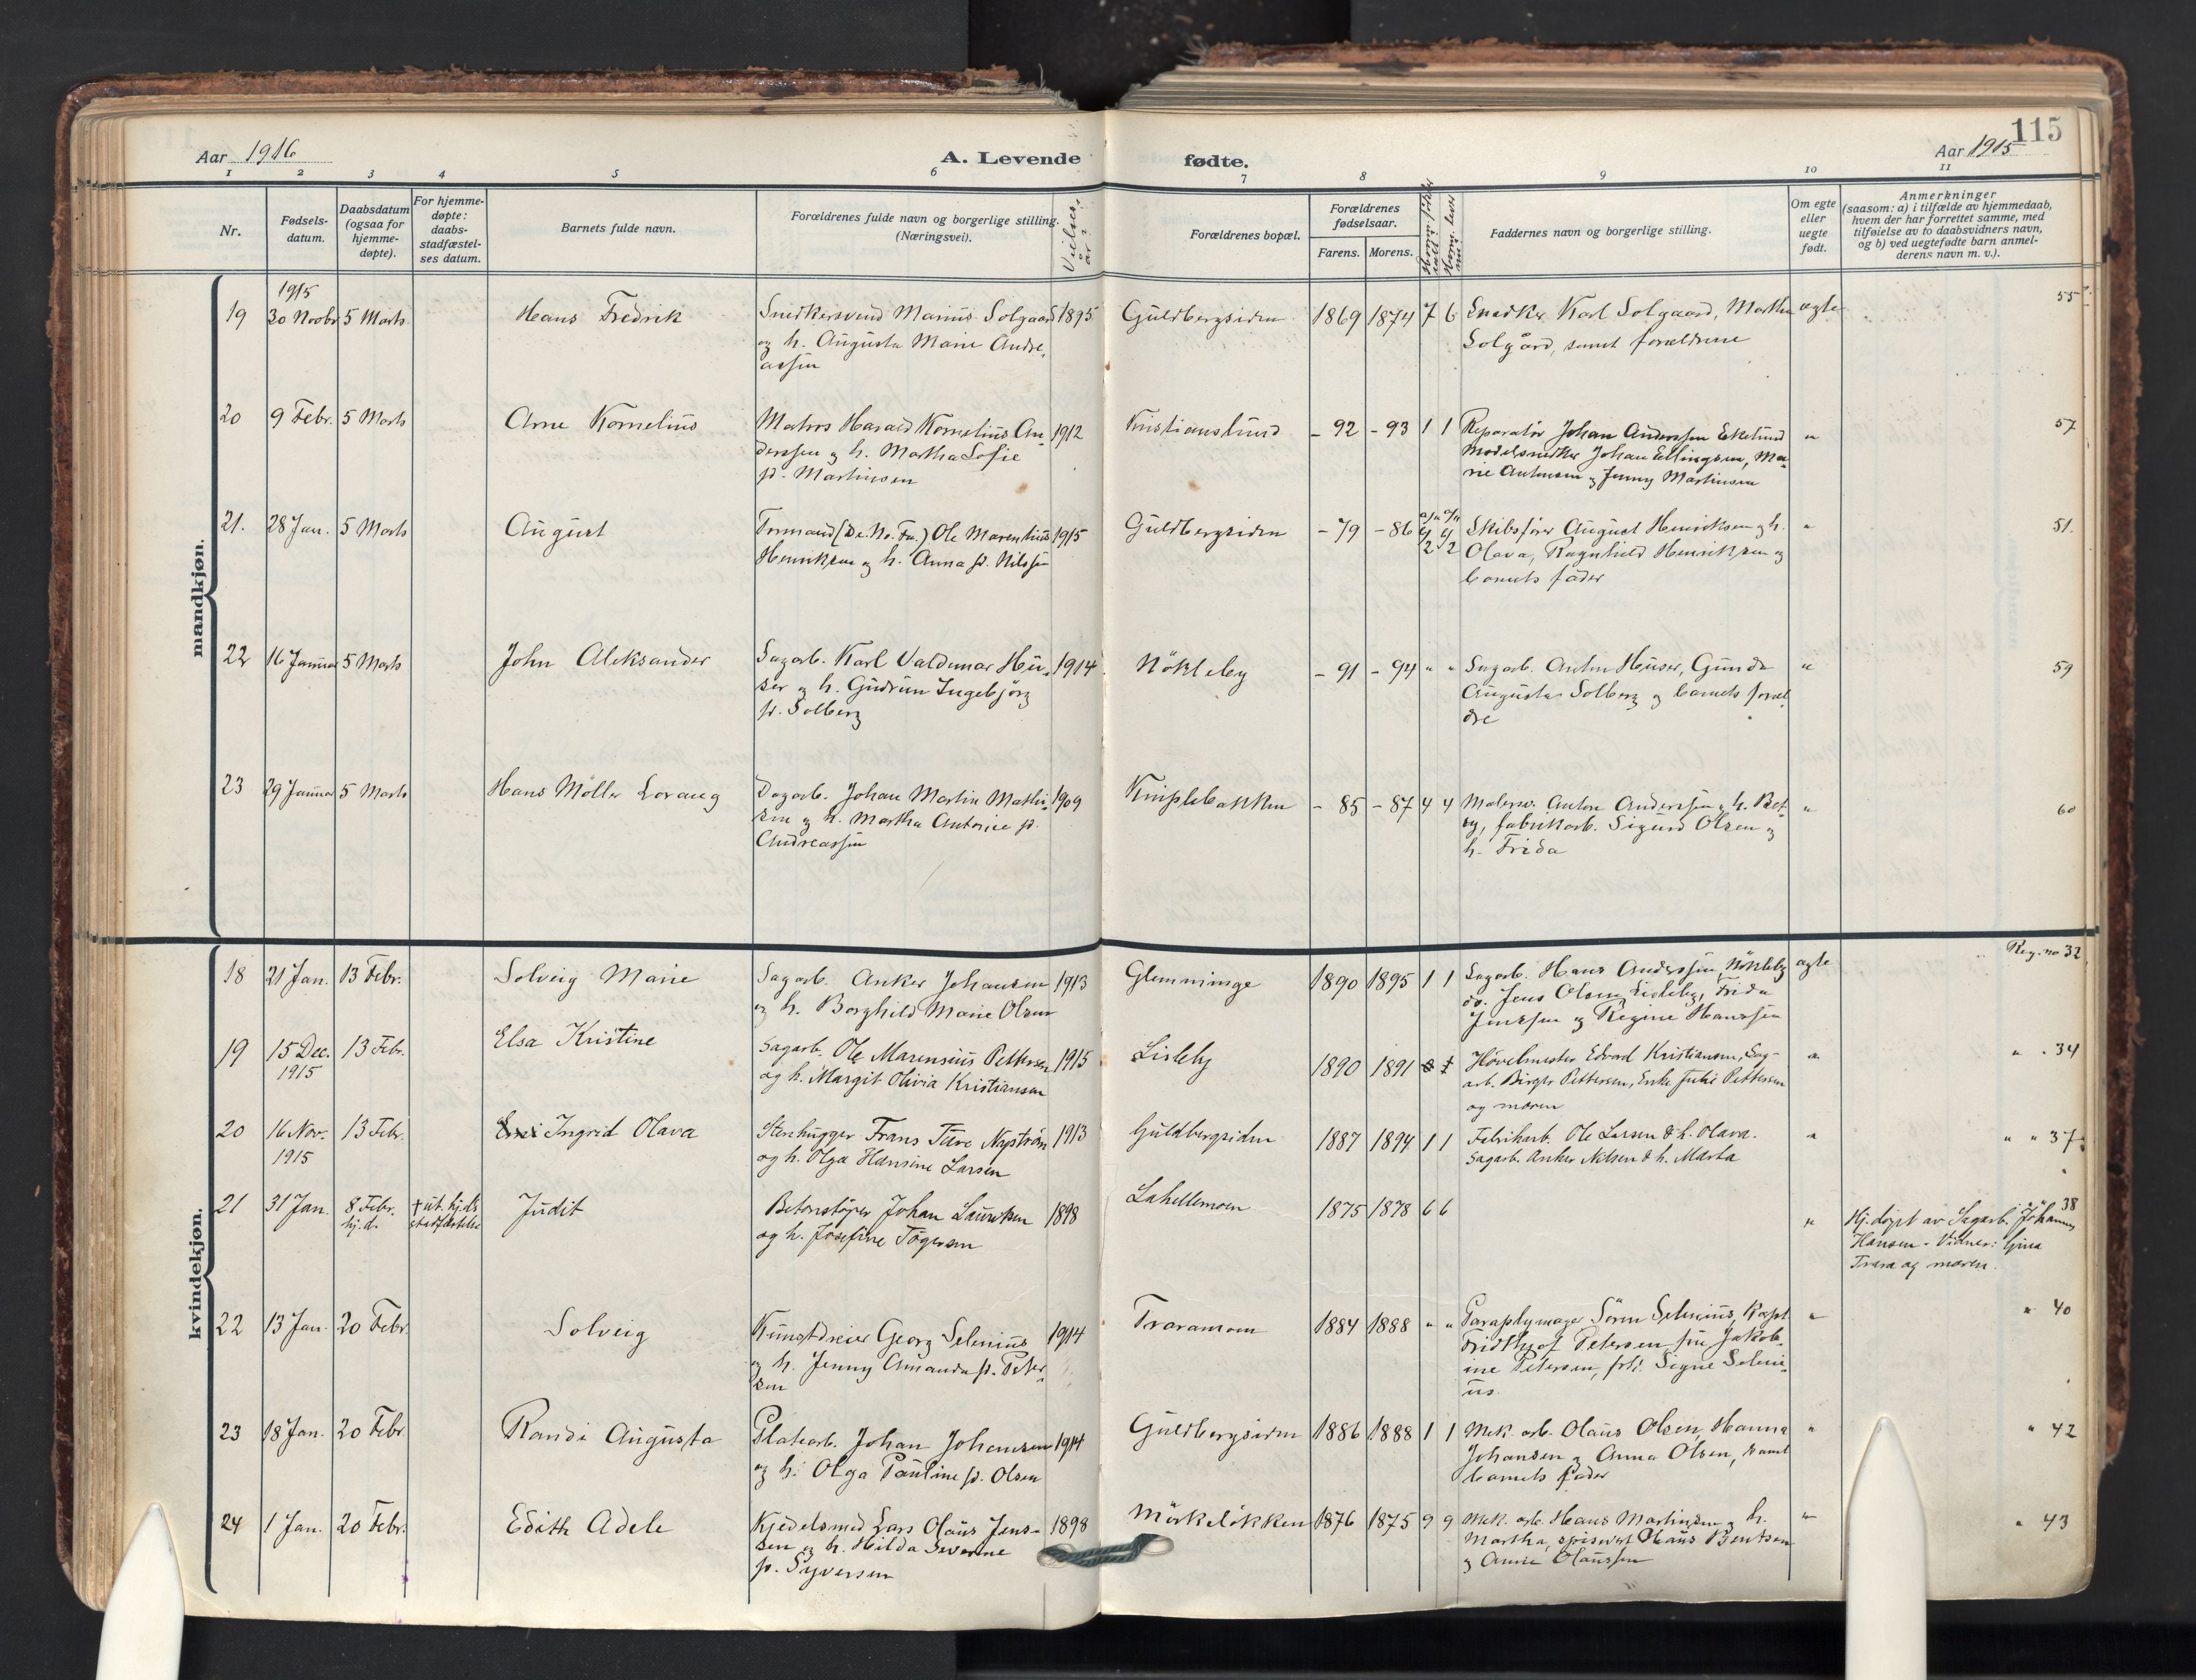 115
Aar 1916
A. Levende
fødte.
Aar 1915
1 2 3 4 5 6 7 8 9 10 11
Nr.
Fødsels-
datum.
Daabsdatum
(ogsaa for
hjemme-
døpte).
For hjemme-
døpte:
daabs-
stadfæstel-
ses datum.
Barnets fulde navn.
Forældrenes fulde navn og borgerlige stilling.
(Næringsvei).
Vielses
aar
Forældrenes bopæl.
Forældrenes
fødselsaar.
Farens. Morens.
Faddernes navn og borgerlige stilling.
Om egte
eller
uegte
født.
Anmerkninger
(saasom: a) i tilfælde av hjemmedaab,
hvem der har forrettet samme, med
tilføielse av to daabsvidners navn,
og b) ved uegtefødte barn anmel-
derens navn m. v.).
mandkjøn.
1915
19 30 Novbr 5 Marts Hans Fredrik Snedkersvend Marius Solgaard 1895 Guldbergsiden 1869 1874 7 6 Snedker Karl Solgaard, Martha egte 55
og h. Augusta Marie Andre- Solgård, samt forældrene
assen
20 9 Febr. 5 Marts Arne Kornelius Matros Harald Kornelius An- 1912 Kristianslund - 92 - 93 1 1 Reparatør Johan Anderssen Ekelund " 57
derssen og h. Martha Sofie Modelsnedker Johan Ellingsen, Ma-
f. Martinsen rie Antonsen og Jenny Martinsen
21. 28 Jan. 5 Marts August Formand (De. No. Fa.) Ole Marenthius 1915 Guldbergsiden - 79 - 86 Skibsfører August Henriksen og h. " 51.
Henriksen og h. Anna f. Nilssen Olava, Ragnhild Henriksen og
barnets fader
22 16 Januar 5 Marts John Aleksander Sagarb. Karl Valdemar Hu- 1914 Nökleby - 91 - 94 " " Sagarb. Anton Huser, Gunda " 59
ser og h. Gudrun Ingebjörg Augusta Solberg og barnets foræl-
f. Solberg dre
23 29 Januar 5 Marts Hans Möller Lorang Dagarb. Johan Martin Mathi- 1909 Kniplebakken - 85 - 87 4 4 Malersv. Anton Anderssen og h. Bet- " 60
sen og h. Martha Antonie f. sy, fabrikarb. Sigurd Olsen og
Andreassen h. Frida
kvindekjøn.
Reg. no 32
18 21 Jan. 13 Febr. Solveig Marie Sagarb. Anker Johansen 1913 Glemminge 1890 1895 1 1 Sagarb. Hans Anderssen, Nökleby egte
og h. Borghild Marie Olsen do. Jens Olsen, Lisleby, Frida
Jenssen og Regine Hanssen
19 15 Dec. 13 Febr. Elsa Kristine Sagarb. Ole Marensius Pettersen 1915 Lisleby 1890 1891 Hövelmester Edvard Kristiansen, Sag- " " . 34
1915 og h. Margit Olivia Kristiansen arb. Birger Pettersen, Enke Julie Pettersen
og moren
20 16 Nov. 13 Febr. Ingrid Olava Stenhugger Frans Ture Nyström 1913 Guldbergsiden 1887 1894 1 1 Fabrikarb. Ole Larsen & h. Olava. " " " 37
1915 og h. Olga Hansine Larsen Sagarb. Anker Nilsen & h. Marta
21 31 Jan. 8 Febr. † ut. hj.ds Judit Betonstöper Johan Lauritsen 1898 Lahellemoen 1875 1878 6 6 " Hj. döpt av Sagarb. Johannes 38
hj.d. stadfæstelse og h. Josefine Tögersen Hansen. Vidner: Gina
Trara og moren.
22 13 Jan. 20 Febr. Solveig Kunstdreier Georg Selenius 1914 Traramoen 1884 1888 " " Paraplymager Sören Selenius, Kapt. " " 40
og h. Jenny Amanda f. Peter- Fridthjof Petersen, fru Jakob-
sen ine Petersen, frk. Signe Seleni-
us.
23 18 Jan. 20 Febr. Randi Augusta Platearb. Johan Johansen 1914 Guldbergsiden 1886 1888 1 1 Mek. arb. Olaus Olsen, Hanna " " 42
og h. Olga Pauline f. Olsen Johansen og Anna Olsen, samt
barnets fader
24 1 Jan. 20 Febr. Edith Adele Kjedelsmed Lars Olaus Jens- 1898 Mörkelökken 1876 1875 9 9 Mek. arb. Hans Martinsen og h. " " 43
sen og h. Hilda Severine Martha, spisevert Claus Bentsen
f. Syversen og Annie Claussen